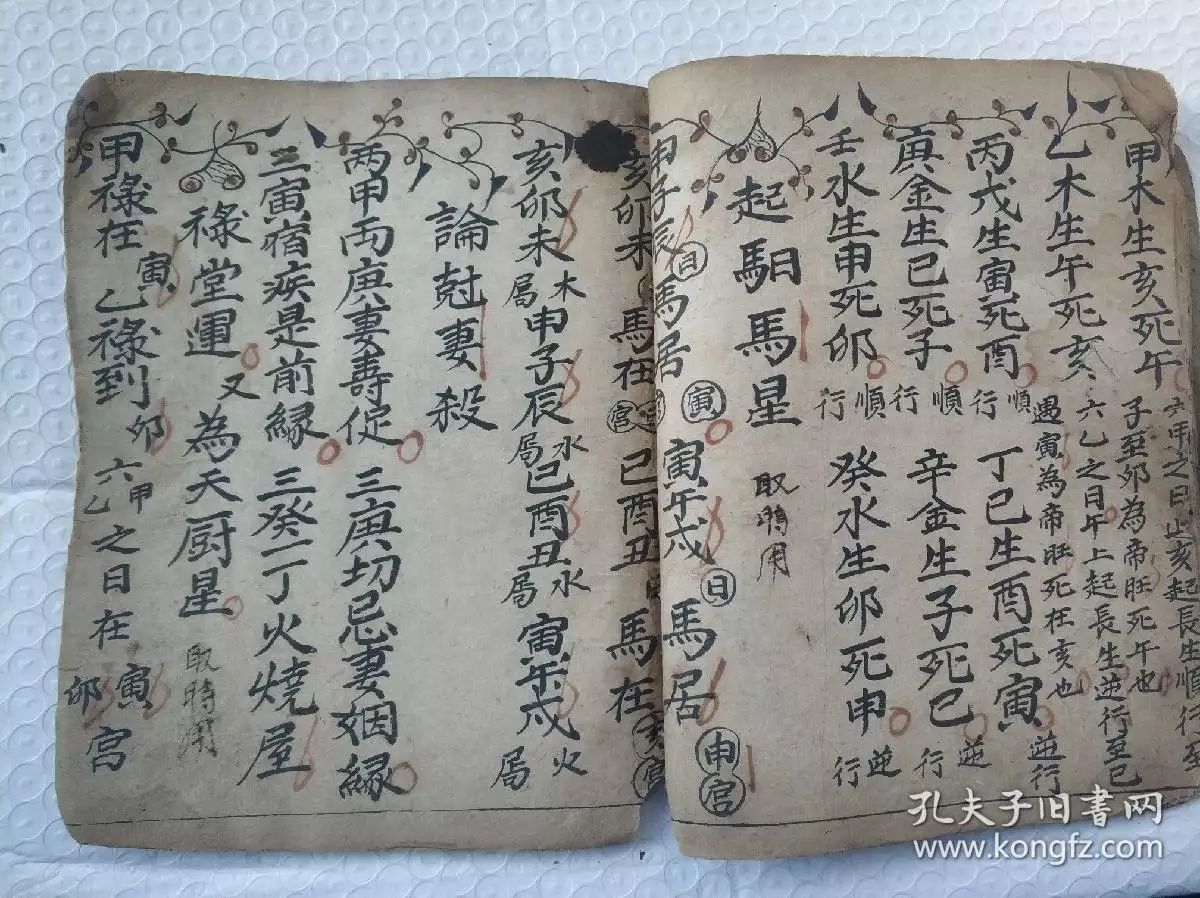 甲木生亥死午
六甲之日止亥起長生順行至
子至卯為帝旺死午也
乙木生午死亥
六乙之日午上起長生逆行至巳
遇寅為帝旺死在亥也 逆行
丙戊生寅死酉 順行 丁巳生酉死寅
庚金生巳死子 順行 辛金生子死巳 逆行
壬水生申死卯 順行 癸水生卯死申 逆行
起馹馬星 取時用
申子辰日馬居寅 寅午戌日馬居申宮
亥卯未 馬在 宮 巳酉丑 馬在亥宮
亥卯未木局 申子辰水局 巳酉丑水局 寅午戌火局
論尅妻殺
丙甲両庚妻壽促 三庚切忌妻姻縁
三寅宿疾是前縁 三癸一丁火燒屋
祿堂運 又為天厨星 取時用
甲祿在寅 乙祿到卯 六甲六乙之日在寅卯宮
孔夫子旧书网
www.kongfz.com